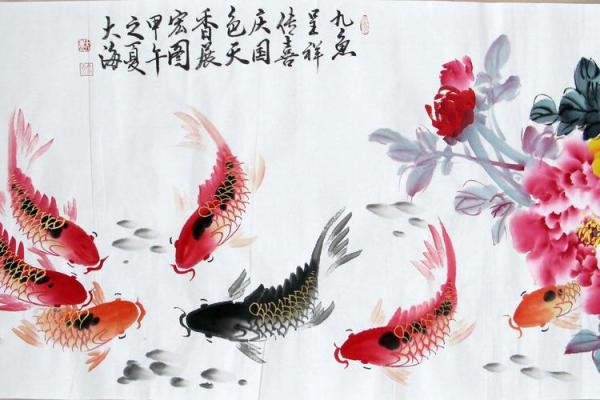 九魚
呈祥
传喜
庆国
色天
香展
宏图
甲午
之夏
大海